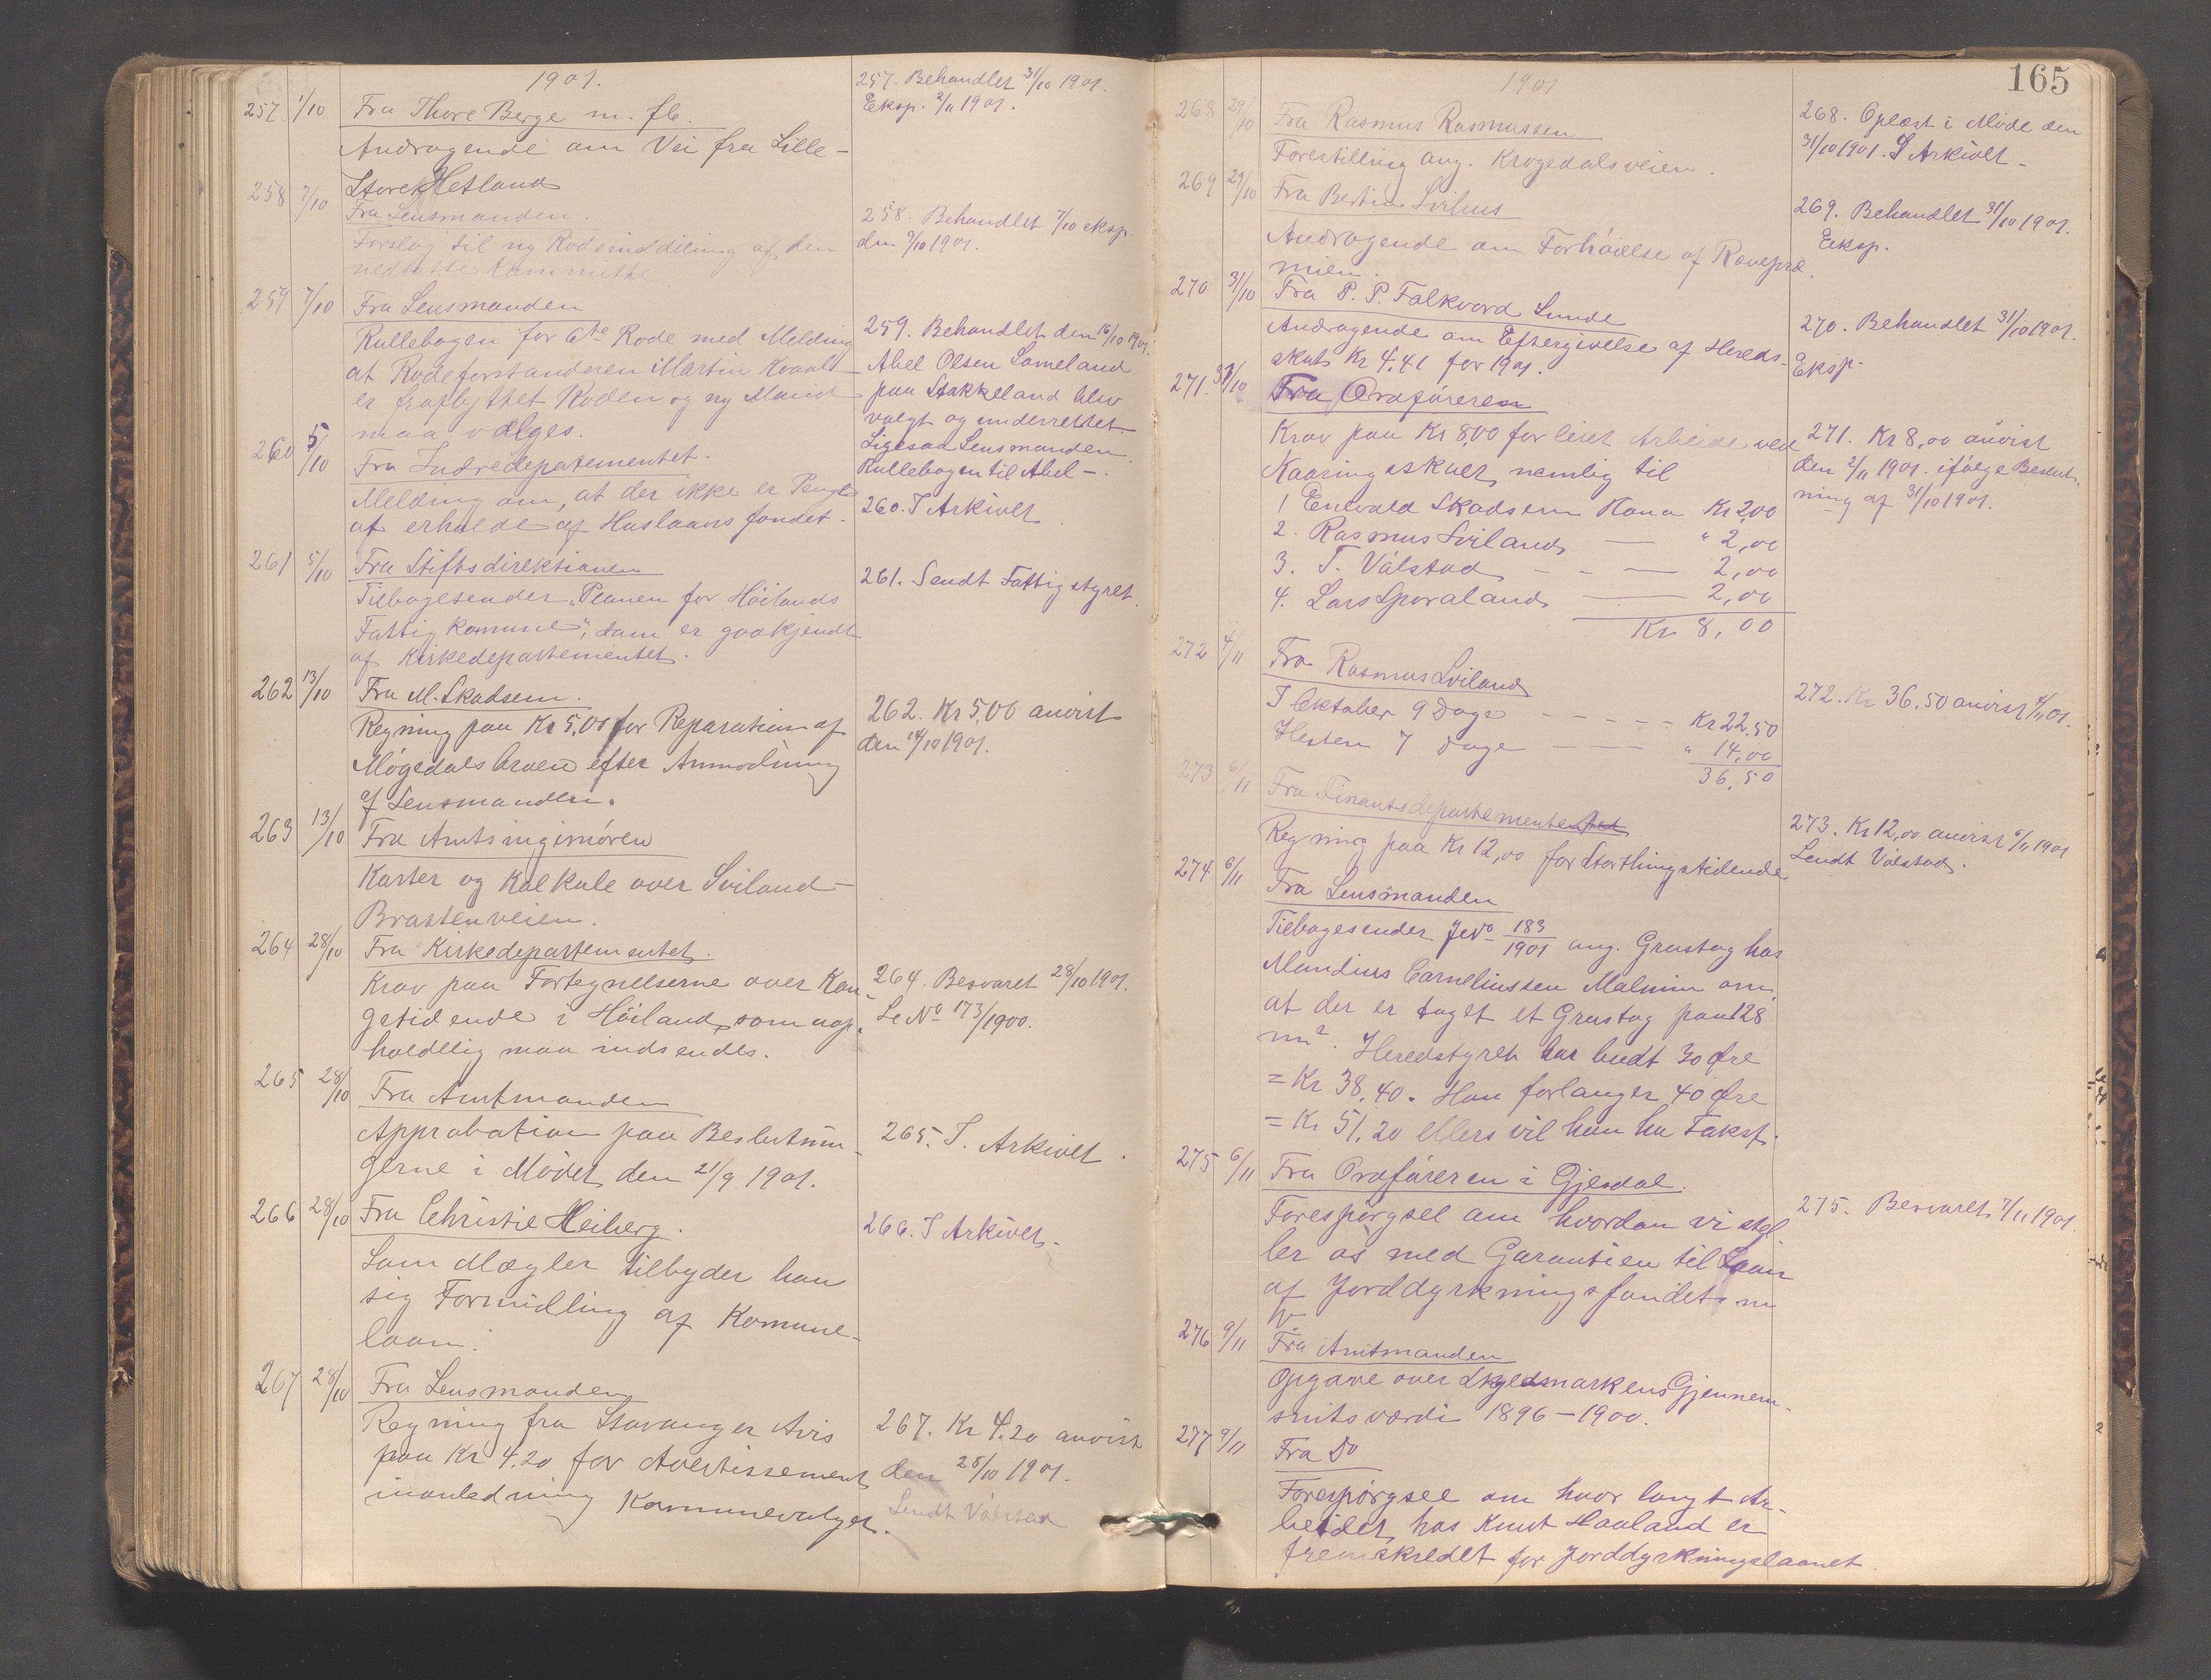 1901.
257 1/10 Fra Thore Berge m. fl.
Andragende om Vei fra Lille-
Store Hetland
258 7/10 Fra Lensmanden.
Forslag til ny Rodeinddeling af den
nedsatte Kommitte
259 7/10 Fra Lensmanden
Rullebogen for 6te Rode med Melding
at Rodeforstanderen Martin Kvaal
er fraflyttet Roden og ny Mand
maa vælges.
260 5/10 Fra Indredepartementet.
Melding om, at der ikke er Penge
at erholde af Huslaansfondet.
261 5/10 Fra Stiftsdirektionen
Tilbagesender "Planen for Höilands
Fattigkomune", som er godkjendt
af Kirkedepartementet.
262 13/10 Fra M. Skadsem.
Regning paa Kr 5,00 for Reparation af
Mögedalsbroen efter Anmodning
af Lensmanden.
263 13/10 Fra Amtsingeniøren
Karter og Kalkule over Sviland-
Brastenveien.
264 28/10 Fra Kirkedepartementet.
Krav paa Fortegnelserne over Kon-
getidende i Höiland, som uop-
holdelig maa indsendes.
265 28/10 Fra Amtmanden
Approbation paa Beslutnin-
gerne i Mödet den 21/9 1901.
266 28/10 Fra Christie Heiberg.
Som Mægler tilbyder han
sig Formidling af Komune-
laan.
267 28/10 Fra Lensmanden
Regning fra Stavanger Avis
paa Kr 4.20 for Avertissement
i anledning Kommunevalget.
257. Behandlet 31/10 1901.
Eksp. 2/11 1901.
258. Behandlet 7/10 eksp.
den 9/10 1901.
259. Behandlet den 16/10 1901.
Abel Olsen Lomeland
paa Stakkeland blev
valgt og underrettet.
Ligesaa Lensmanden.
Rullebogen til Abel -.
260. I Arkivet
261. Sendt Fattigstyret.
262. Kr 5,00 anvist
den 14/10 1901.
264. Besvaret 28/10 1901.
Se No 173/1900.
265. I. Arkivet.
266. I Arkivet.
267. Kr 4.20 anvist
den 28/10 1901.
Sendt Válstad
165
1901
268 29/10 Fra Rasmus Rasmussen
Forestilling ang. Krogedalsveien.
269 29/10 Fra Bertin Svihus
Andragende om Forhöielse af Rævepræ-
mien.
270 31/10 Fra P. P. Falkvard Lunde
Andragende om Eftergivelse af Hereds-
skat Kr 4.41 for 1901.
271. 31/10 Fra Ordføreren
Krav paa Kr 8,00 for leiet Arbeide ved
Kaaringsskuet, nemlig til
1 Enevald Skadsem Hana Kr 2,00
2. Rasmus Sviland — " 2,00
3. T. Válstad - - — 2,00
4. Lars Sporaland — 2,00
Kr 8,00
272 4/11 Fra Rasmus Sviland
I Oktober 9 Dage - - - - - Kr 22,50
Hesten 7 Dage — " 14,00
36,50
273 6/11 Fra Finantsdepartementet
Regning paa Kr 12,00 for Storthingstidende
274 6/11 Fra Lensmanden
Tilbagesender JNo 183/1901 ang. Grustag hos
Mandius Corneliussen Malmin om,
at der er taget et Grustag paa 128
m². Heredstyret har budt 30 Øre
= Kr 38,40. Han forlanger 40 Øre
= Kr 51,20 ellers vil han ha Takst.
275 6/11 Fra Ordføreren i Gjesdal.
Forespörgsel om hvordan vi stel-
ler os med Garantien til Laan
af Jorddyrkningsfondet m
v
276 9/11 Fra Amtmanden
Opgave over Skyldmarkens Gjennem-
snitsværdi 1896-1900.
277 9/11 Fra Do
Forespörgsel om hvor langt Ar-
beidet hos Knut Haaland er
fremskredet for Jorddyrkningslaanet.
268. Oplæst i Möde den
31/10 1901. I Arkivet -
269. Behandlet 31/10 1901.
Eksp.
270. Behandlet 31/10 1901.
Eksp.
271. Kr 8,00 anvist
den 2/11 1901. ifølge Beslut-
ning af 31/10 1901.
272. Kr 36,50 anvist 4/11 01.
273. Kr 12,00 anvist 6/11 1901
Sendt Válstad.
275. Besvaret 7/11 1901.